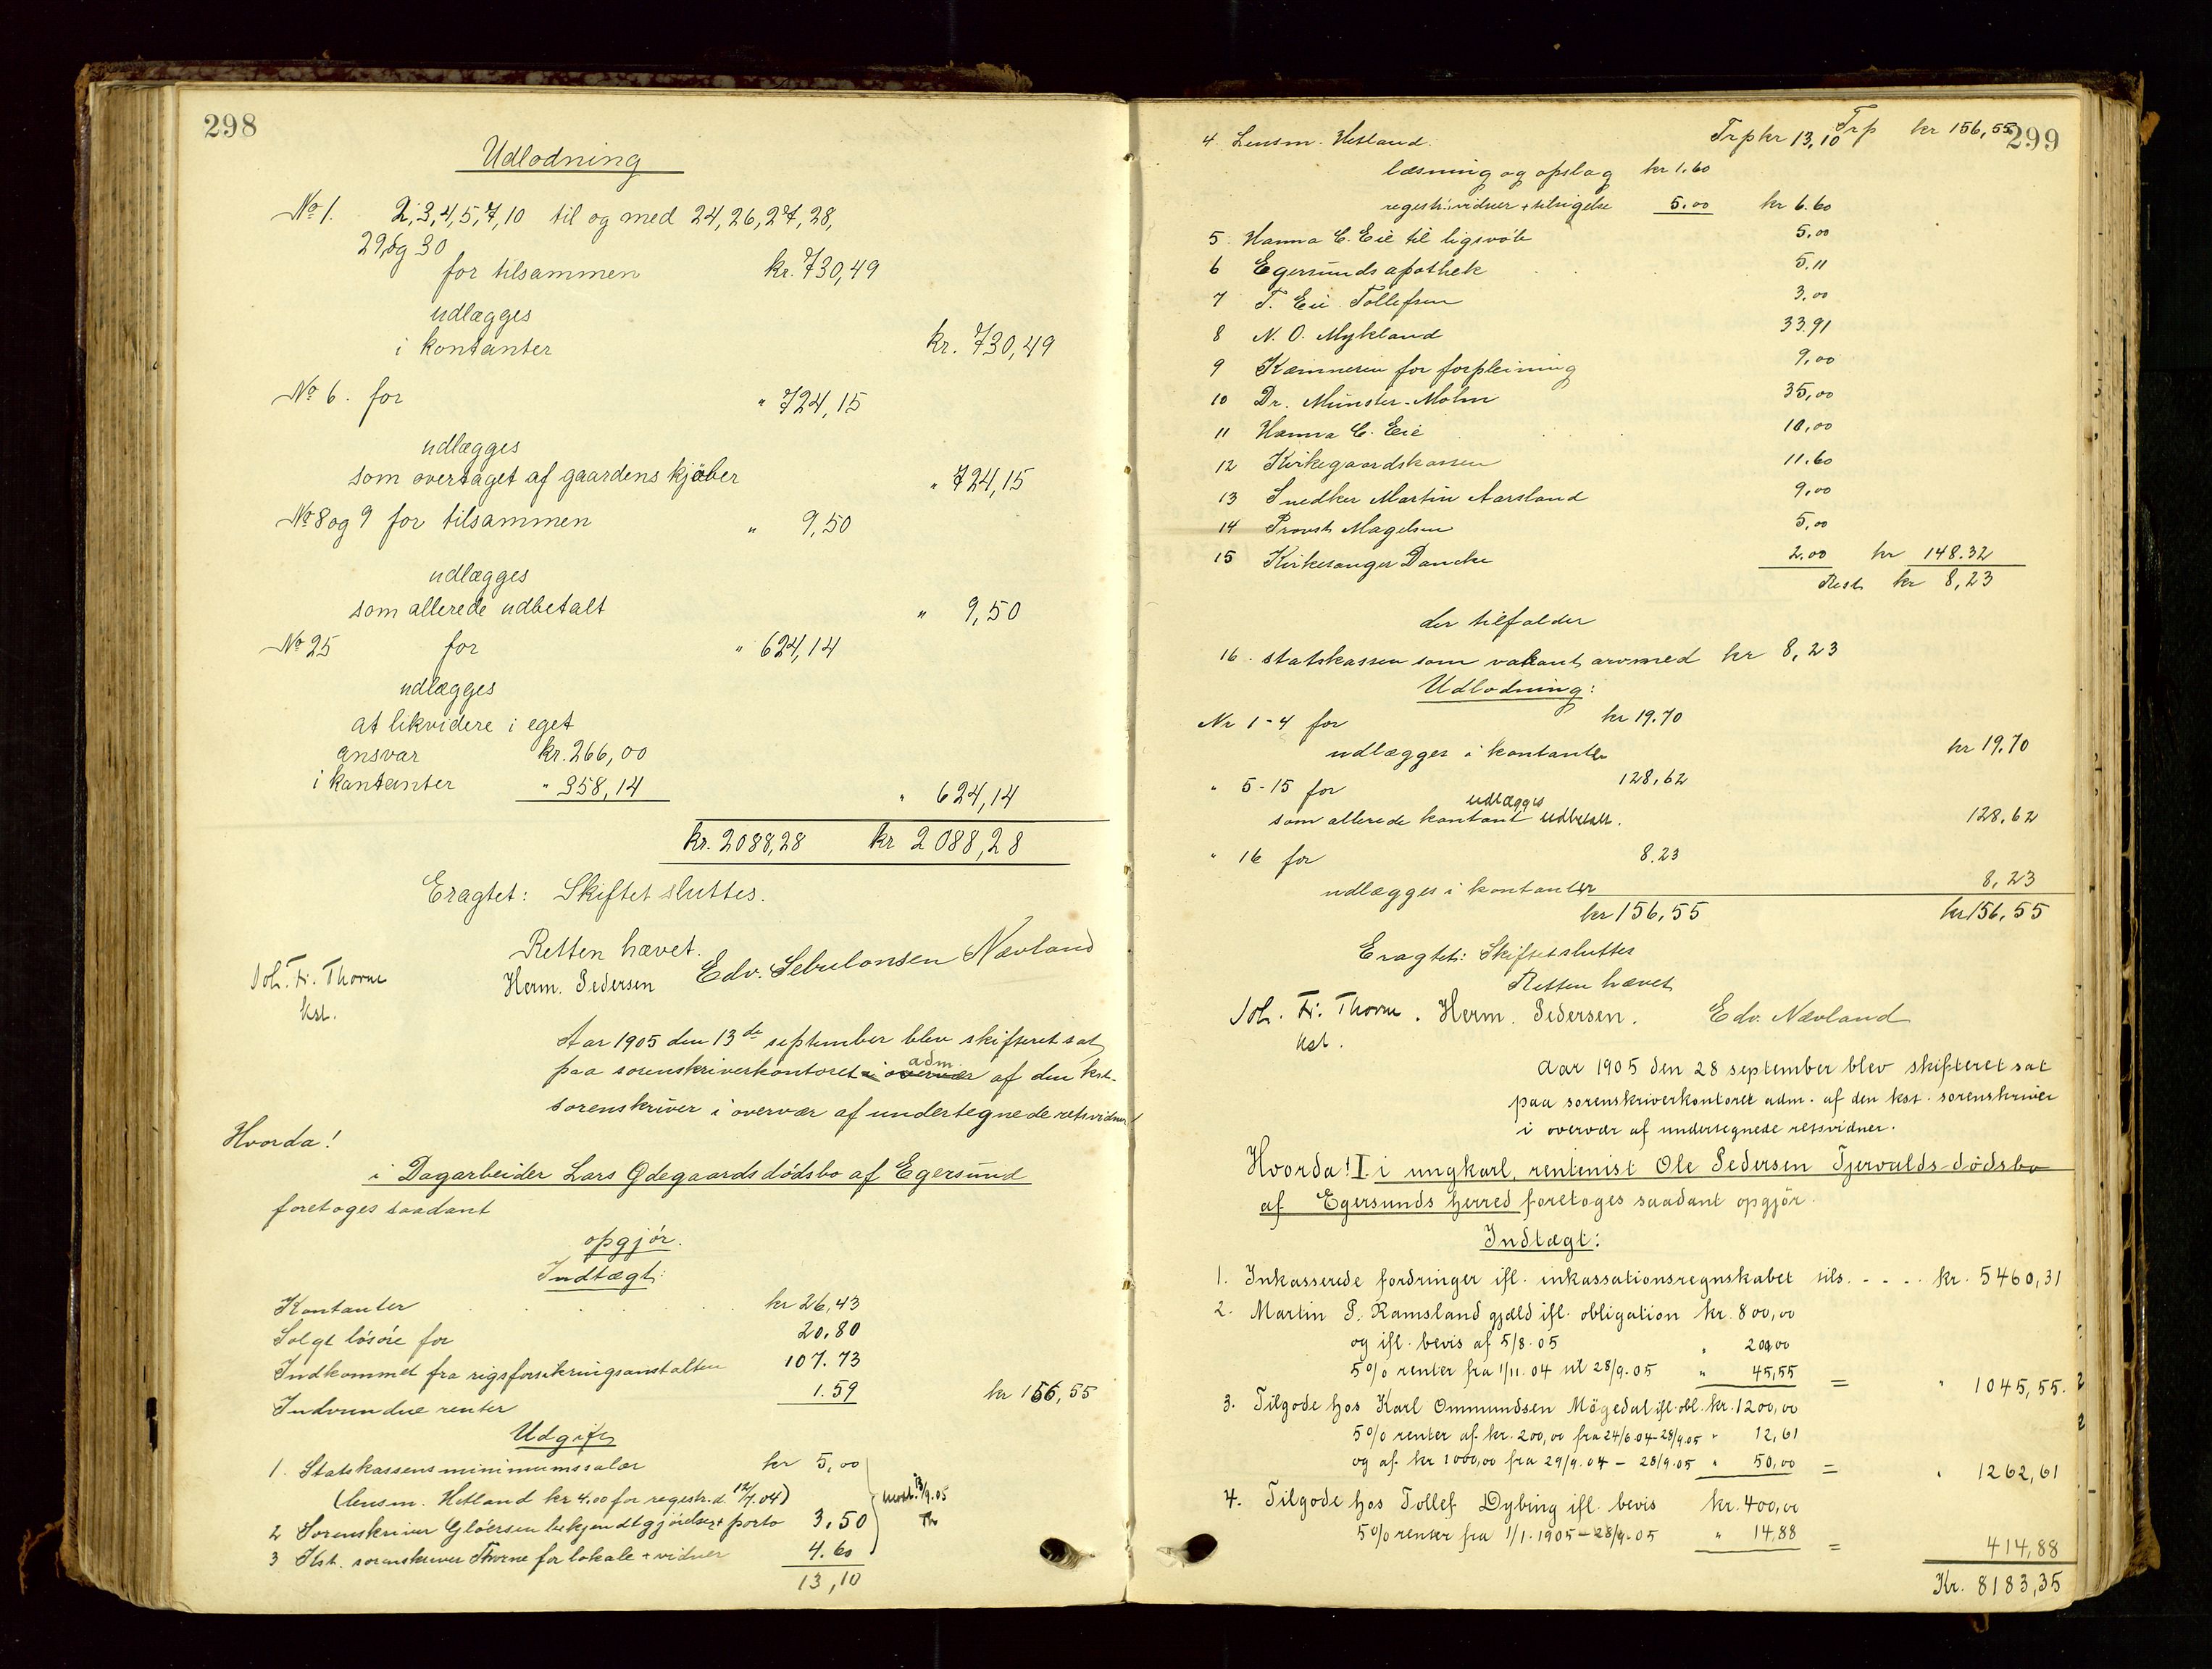 298
Udlodning
No 1. 2,3,4,5,7,10 til og med 24,26,27,28,
29, og 30
for tilsammen kr. 730,49
udlægges
i kontanter kr. 730,49
No 6. for " 724,15
udlægges
som overtaget af gaardens kjøber " 724,15
No 8 og 9 for tilsammen " 9,50
udlægges
som allerede udbetalt " 9,50
No 25 for " 624,14
udlægges
at likvidere i eget
ansvar kr. 266,00
i kontanter " 358,14 " 624,14
kr. 2088,28 kr 2088,28
Eragtet: Skiftet sluttes.
Retten hævet.
Joh. Fr. Thorne Herm. Pedersen Edv. Sebulonsen Nævland
kst.
Aar 1905 den 13de september blev skifteret sat
paa sorenskriverkontoret i overvær adm. af den kst.
sorenskriver i overvær af undertegnede retsvidner
Hvorda!
i Dagarbeider Lars Ødegaards dödsbo af Egersund
foretoges saadant
opgjör.
Indtægt:
Kontanter kr 26,43
Solgt lösöre for 20.80
Indkommet fra rigsforsikringsanstalten 107.73
Indvundne renter 1.59 kr 156,55
Udgift
1. Statskassens minimumssalær kr 5,00
(lensm. Hetland kr 4.00 for registr. d. 12/7.04)
2 Sorenskriver Gløersen bekjendtgjörelser + porto 3.50
3 Kst. sorenskriver Thorne for lokale + vidner 4.60
13,10
modt. 13/9.05
Th
299
Trp kr 156,55
4 Lensm. Hetland. Trp kr 13,10
læsning og opslag kr 1.60
registr. vidner + tilsigelse 5.00 kr 6.60
5. Hanna C. Eie til ligsvøb 5,00
6 Egersunds apothek 5.11
7 T. Eie Tollefsen 3.00
8 N. O. Mykland 33.91
9 Kæmneren for forpleining 9,00
10 Dr. Münster-Mohn 35,00
11 Hanna C. Eie 10,00
12 Kirkegaardskassen 11.60
13 Snedker Martin Aarsland 9,00
14 Provst Magelsen 5,00
15 Kirkesanger Dancke 2.00 kr 148.32
Rest kr 8,23
der tilfalder
16. statskassen som vakant arv med kr 8,23
Udlodning:
Nr 1-4 for kr 19.70
udlægges i kontanter kr 19.70
" 5-15 for 128,62
udlægges
som allerede kontant udbetalt. 128.62
" 16 for 8.23
udlægges i kontanter 8,23
kr 156,55 kr 156,55
Eragtet: Skiftet sluttes
Retten hævet
Joh. Fr. Thorne. Herm. Pedersen. Edv. Nævland
kst.
Aar 1905 den 28 september blev skifteret sat
paa sorenskriverkontoret adm. af den kst. sorenskriver
i overvær af undertegnede retsvidner.
Hvorda! I. i ungkarl, rentenist Ole Pedersen Tjervalds dödsbo
af Egersunds herred foretoges saadant opgjör.
Indtægt:
1. Inkasserede fordringer ifl. inkassationsregnskabet tils. - - - . kr. 5460,31
2. Martin P. Ramsland gjæld ifl. obligation kr. 800,00
og ifl. bevis af 5/8.05 " 200,00
5% renter fra 1/11.04 til 28/9.05 " 45,55 = " 1045,55.
3. Tilgode hos Karl Ommundsen Mögedal ifl. obl. kr. 1200,00
5% renter af kr. 200,00 fra 24/6 04-28/9.05 " 12,61
og af kr 1000,00 fra 29/9.04 - 28/9.05 " 50,00 = " 1262,61
4. Tilgode hos Tollef Dybing ifl. bevis kr. 400,00
5% renter fra 1/1.1905-28/9.05 " 14.88 = 414,88
Kr. 8183,35